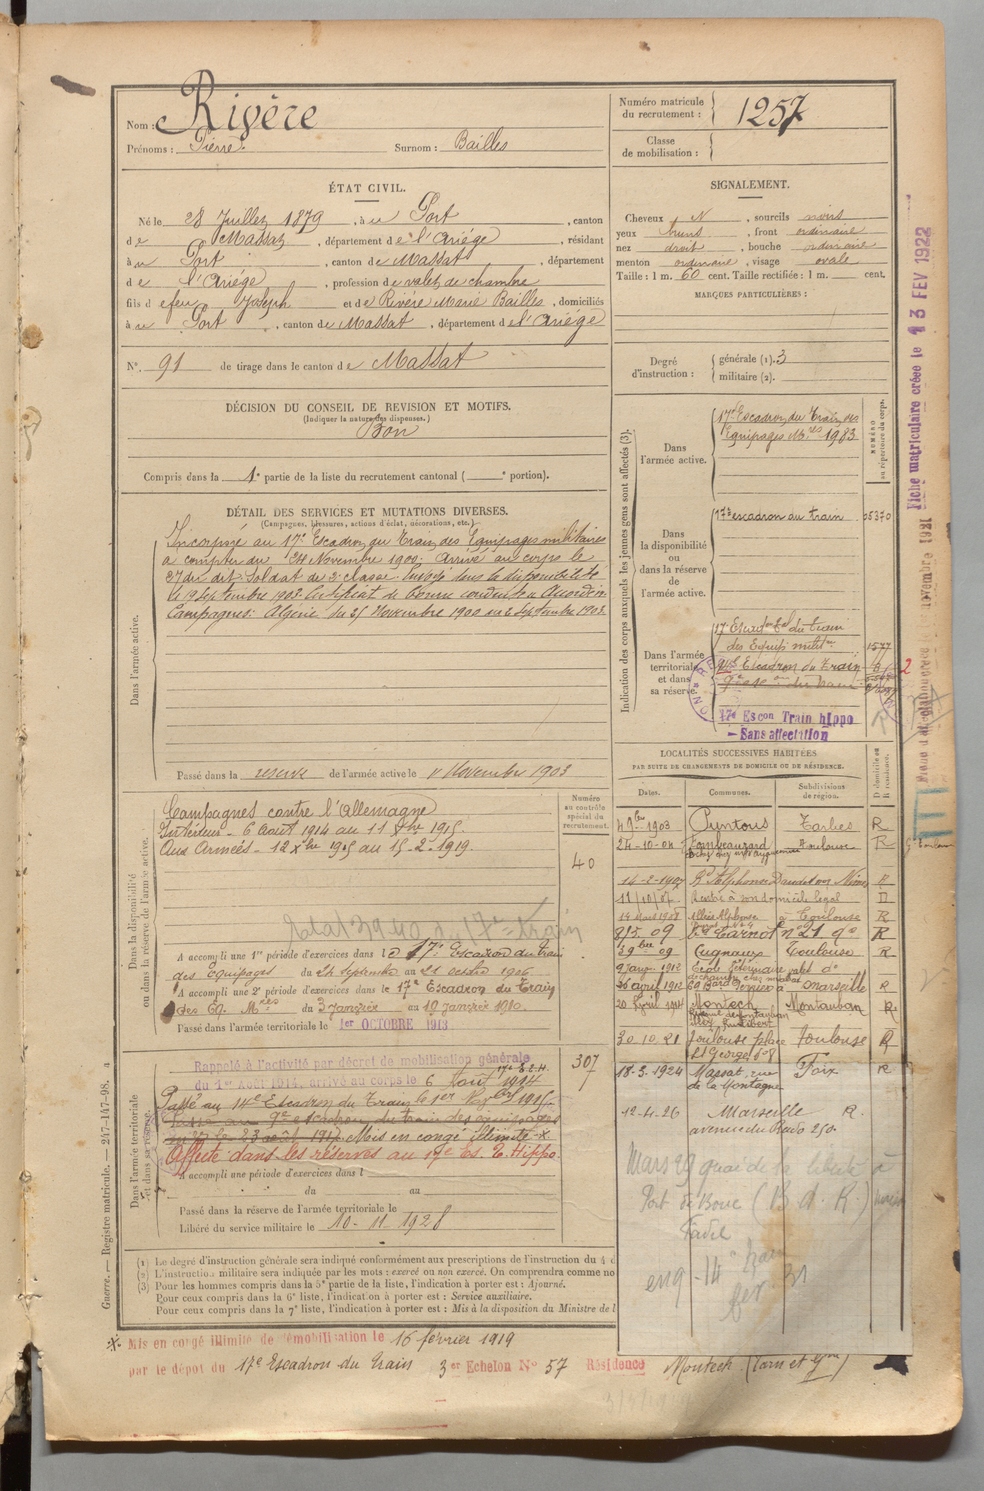 Nom : Rivère
Prénoms : Pierre. Surnom : Bailles
ÉTAT CIVIL.
Né le 28 Juillet 1879, à u Port, canton
de Massat, département de l'Ariége, résidant
à u Port, canton de Massat, département
de l'Ariége, profession de valet de chambre
fils de feu Joseph et de Rivère Marie Bailles, domiciliés
à u Port, canton de Massat, département de l'Ariége
N°. 91 de tirage dans le canton de Massat
DÉCISION DU CONSEIL DE REVISION ET MOTIFS.
(Indiquer la nature des dispenses.)
Bon
Compris dans la 1e partie de la liste du recrutement cantonal ( e portion).
DÉTAIL DES SERVICES ET MUTATIONS DIVERSES.
(Campagnes, blessures, actions d'éclat, décorations, etc.)
Dans l'armée active.
Incorporé au 17e Escadron du Train des Equipages militaires
à compter du 24 Novembre 1900; Arrivé au corps le
27 du dit; Soldat de 2e classe. Envoyé dans la disponibilité
le 19 Septembre 1903. Certificat de Bonne conduite Accordé.
Campagnes: Algérie du 25 Novembre 1900 au 2 Septembre 1903.
Passé dans la reserve de l'armée active le 1r Novembre 1903
Dans la disponibilité
ou dans la réserve de l'armée active.
Numéro
au contrôle
spécial du
recrutement.
40
Campagnes contre l'Allemagne
Intérieur - 6 Aout 1914 au 11 Xbre 1915.
Aux Armées - 12 Xbre 1915 au 15-2-1919.
A accompli une 1re période d'exercices dans le 17e Escadron du train
des Equipages du 24 Septembre au 21 octobre 1906
A accompli une 2e période d'exercices dans le 17e Escadron du Train
des Eq. Mres du 3 Janvier au 19 Janvier 1910.
Passé dans l'armée territoriale le 1er OCTOBRE 1913
Dans l'armée territoriale
et dans sa réserve.
307
Rappelé à l'activité par décret de mobilisation générale
du 1er Août 1914, arrivé au corps le 6 Août 1914
Passé au 14e Escadron du Train le 1er 1915
Passé au 9e escadron du train des équipages
le 23 août 1917 Mis en congé illimité ※
Affecté dans les réserves au 17e Es. T. Hippo.
A accompli une période d'exercices dans l
du au
Passé dans la réserve de l'armée territoriale le
Libéré du service militaire le 10-11-1928
(1) Le degré d'instruction générale sera indiqué conformément aux prescriptions de l'instruction du 4 d
(2) L'instruction militaire sera indiquée par les mots : exercé ou non exercé. On comprendra comme no
(3) Pour les hommes compris dans la 5e partie de la liste, l'indication à porter est : Ajourné.
Pour ceux compris dans la 6e liste, l'indication à porter est : Service auxiliaire.
Pour ceux compris dans la 7e liste, l'indication à porter est : Mis à la disposition du Ministre de l
※ Mis en congé illimité de démobilisation le 16 février 1919
par le dépôt du 17e Escadron du Train 3er Echelon N° 57 Résidence Montech (Tarn et Gne)
Guerre. — Registre matricule. — 247-147-98.
Numéro matricule
du recrutement : 1257
Classe
de mobilisation :
SIGNALEMENT.
Cheveux N, sourcils noirs
yeux bruns, front ordinaire
nez droit, bouche ordinaire
menton ordinaire, visage ovale
Taille : 1 m. 60 cent. Taille rectifiée : 1 m. cent.
MARQUES PARTICULIÈRES :
Degré
d'instruction :
générale (1). 3
militaire (2).
Indication des corps auxquels les jeunes gens sont affectés (3).
NUMÉRO
au répertoire du corps.
Dans
l'armée active.
17e Escadron du Train des
Equipages Mres 1983
Dans
la disponibilité
ou dans
la réserve
de
l'armée active.
17e escadron du train 05370
Dans l'armée
territoriale
et dans
sa réserve.
17e Escadron Tal du train
des Equip. milit. 1577
Escadron du Train
17e Escon Train hippo
- Sans affectation
LOCALITÉS SUCCESSIVES HABITÉES
PAR SUITE DE CHANGEMENTS DE DOMICILE OU DE RÉSIDENCE.
Dates. Communes. Subdivisions de région. D domicile ou R résidence.
4 9bre 1903 Puntous Tarbes R
24-10-04 Toulouse R
14-2-1907 Bd Alphonse Daudet Nîmes R
11/10/07 Rentré à son domicile légal D
14 Mars 1908 Toulouse R
8/5 09 Bd Carnot n° 21 do R
3 9bre 09 Cugnaux Toulouse R
9 Janv. 1912 École Vétérinaire do
20 avril 1912 Marseille R
Montech Montauban R
30.10.21 Toulouse place Toulouse R
St George n° 8
18-3-1924 Massat, rue Foix R
de la Montagne
12-4-26 Marseille R.
avenue du Prado 250.
Mars 29 quai de la liberté à
Port de Bouc (B. d. R.)
Fiche matriculaire créée le 13 FEV 1922